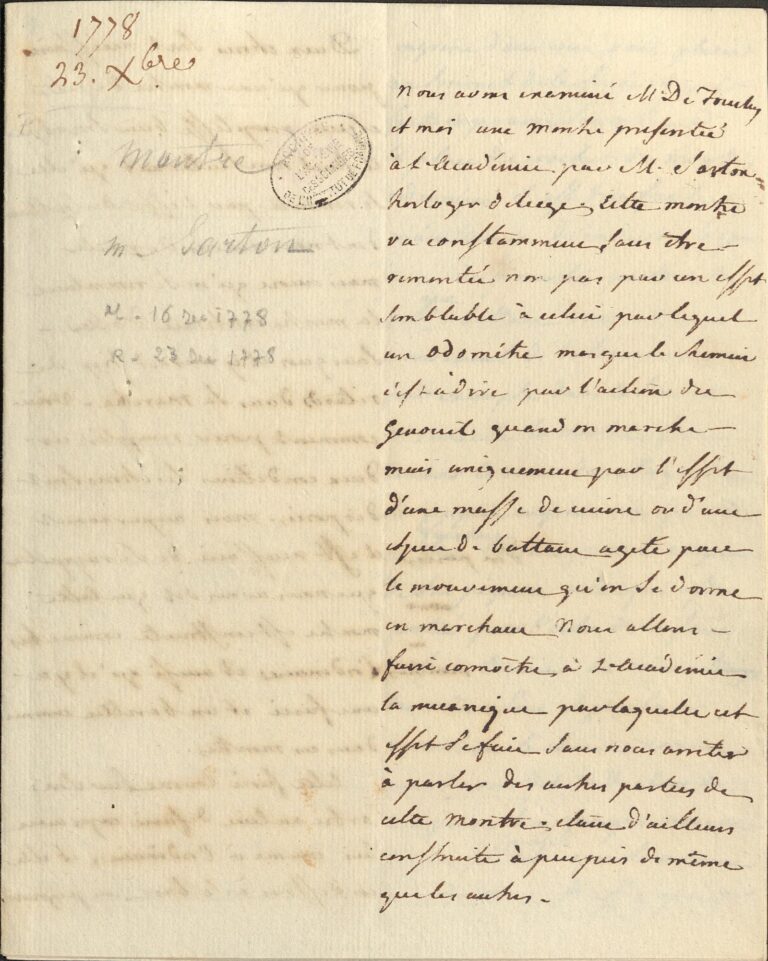 1778
23. Xbre
Montre
M. Sarton
R. 23 Dec 1778
16 Dec 1778
ARCHIVES
DE
L'ACADÉMIE
DES SCIENCES
DE L'INSTITUT DE FRANCE
Nous avons examiné M. De Fouchy
et moi une montre presentée
à L'Académie par M. Sarton
horloger de Liege, Cette montre
va constamment sans être
remontée non pas par un effet
semblable à celui par lequel
un Odométre marque le chemin
c'est à dire par l'action du
Genouil quand on marche
mais uniquement par l'effet
d'une masse de cuivre ou d'une
espece de battant agité par
le mouvement qu'on se donne
en marchant Nous allons
faire connoître à L'Académie
la mecanique par laquelle cet
effet se fait sans nous arrêter
à parler des autres parties de
cette montre, étant d'ailleurs
construite à peu près de même
que les autres.